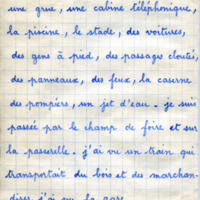 une grue, une cabine téléphonique,
la piscine, le stade, des voitures,
des gens à pied, des passages cloutés,
des panneaux, des feux, la caserne
des pompiers, un jet d'eau. je suis
passée par le champ de foire et sur
la passerelle. j'ai vu un train qui
transportait du bois et des marchan-
dises j'ai vu la gare